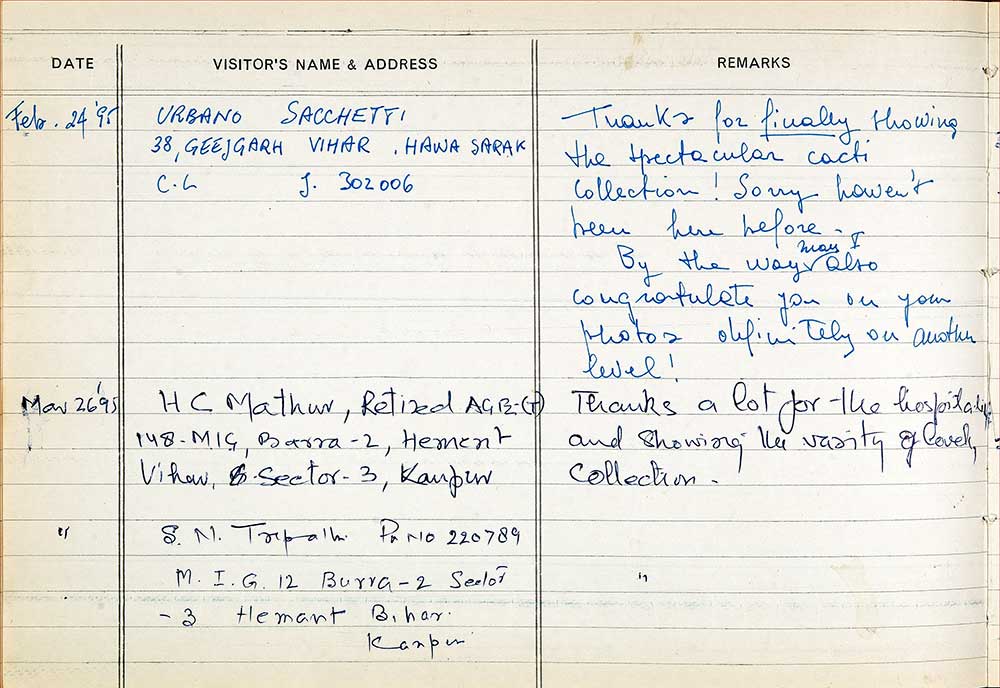 DATE
VISITOR'S NAME & ADDRESS
REMARKS
Feb. 24 '95
URBANO SACCHETTI
38, GEEJGARH VIHAR . HAWA SARAK
C.L J. 302006
Thanks for finally showing
the spectacular cacti
collection! Sorry haven't
been here before -
By the way may I also
congratulate you on your
photos definitely on another
level!
Mar 26 '95
H C Mathur, Retired
148-MIG, Barra-2, Hement
Vihar, Sector-3, Kanpur
Thanks a lot for the hospitality
and showing the varsity of lovely
Collection.
"
S. N. Tripathi Ph No 220789
M. I. G. 12 Burra-2
-3 Hemant Bihar.
Kanpur
"